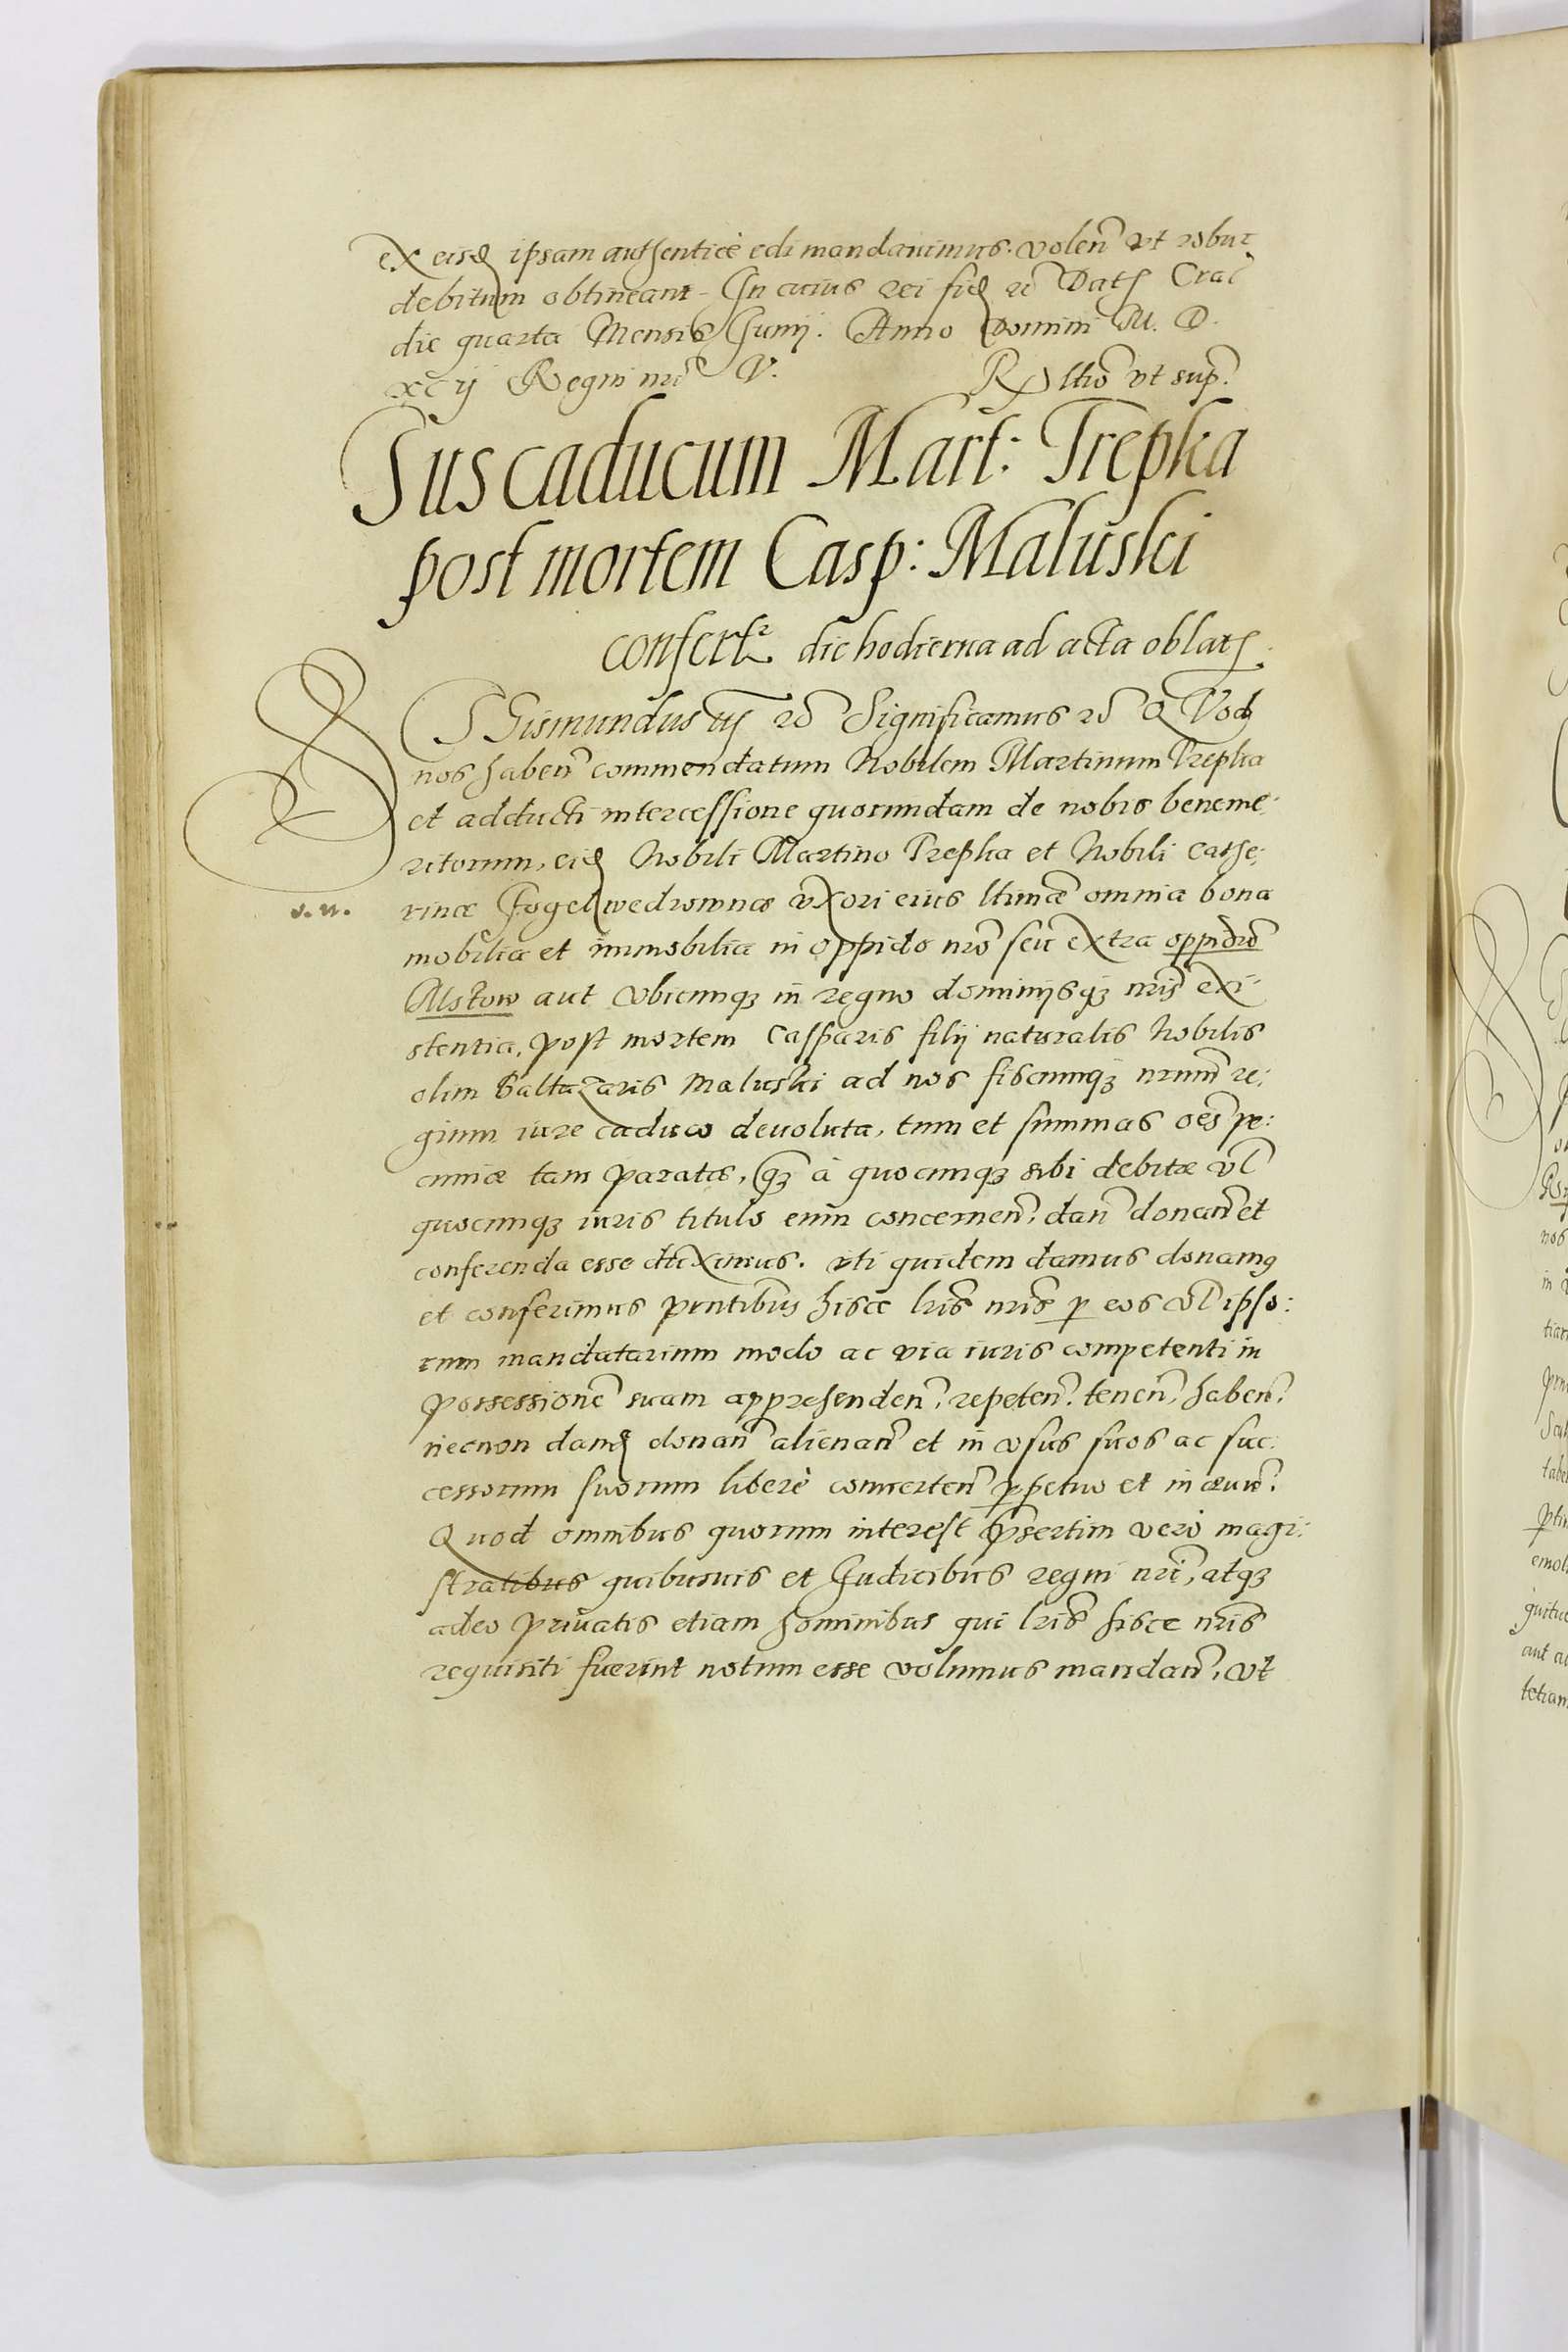 ex eisd ipsam authenticè edi mandauimus. volen̄ vt robur
debitum obtineant. In cuius rei fid ꝛc̄ Dat Crac̄
die quarta Mensis Junij. Anno Domini M. D.
xcij Regni nr̄i V. Rltio vt sup.
Jus caducum Mart: Trepka
post mortem Casp: Maluski
confertr die hodierna ad acta oblat.
SGismundus iij ꝛc̄ Significamus ꝛc̄ QVod
nos haben̄ commendatum Nobilem Martinum Trepka
et adducti intercessione quorundam de nobis beneme:
ritorum, eid Nobili Martino Trepka et Nobili Cathe:
rinæ Fogelwedrownæ vxori eius ltimæ omnia bona
v. n.
mobilia et immobilia in oppido nr̄o seu extra oppidum
Mstow aut vbicunqꝫ in regno dominijsqꝫ nr̄is exi-
stentia, post mortem Casparis filij naturalis Nobilis
olim Baltazaris Maluski ad nos fiscumqꝫ nr̄um re:
gium iure caduco deuoluta, tum et summas oēs pe:
cuniæ tam paratæ, qꝫ à quocunqꝫ sibi debitæ vl̄
quocunqꝫ iuris titulo eum concernen̄, dan̄ donan̄ et
conferenda esse duximus. vti quidem damus donamꝰ
et conferimus pn̄tibus hisce lr̄is nr̄is ꝑ eos vl̄ ipso:
rum mandatarium modo ac via iuris competenti in
possessionē suam apprehenden̄, repeten̄. tenen̄, haben̄.
necnon dand donan̄ alienan̄ et in vsus suos ac suc:
cessorum suorum liberè conuerten̄ ꝑpetuo et in æuum.
Quod omnibus quorum interest p̄sertim verò magi:
stratibus quibusuis et Judicibus regni nr̄i, atqꝫ
adeo priuatis etiam hominibus qui lr̄is hisce nr̄is
requisiti fuerint notum esse volumus mandan̄, vt